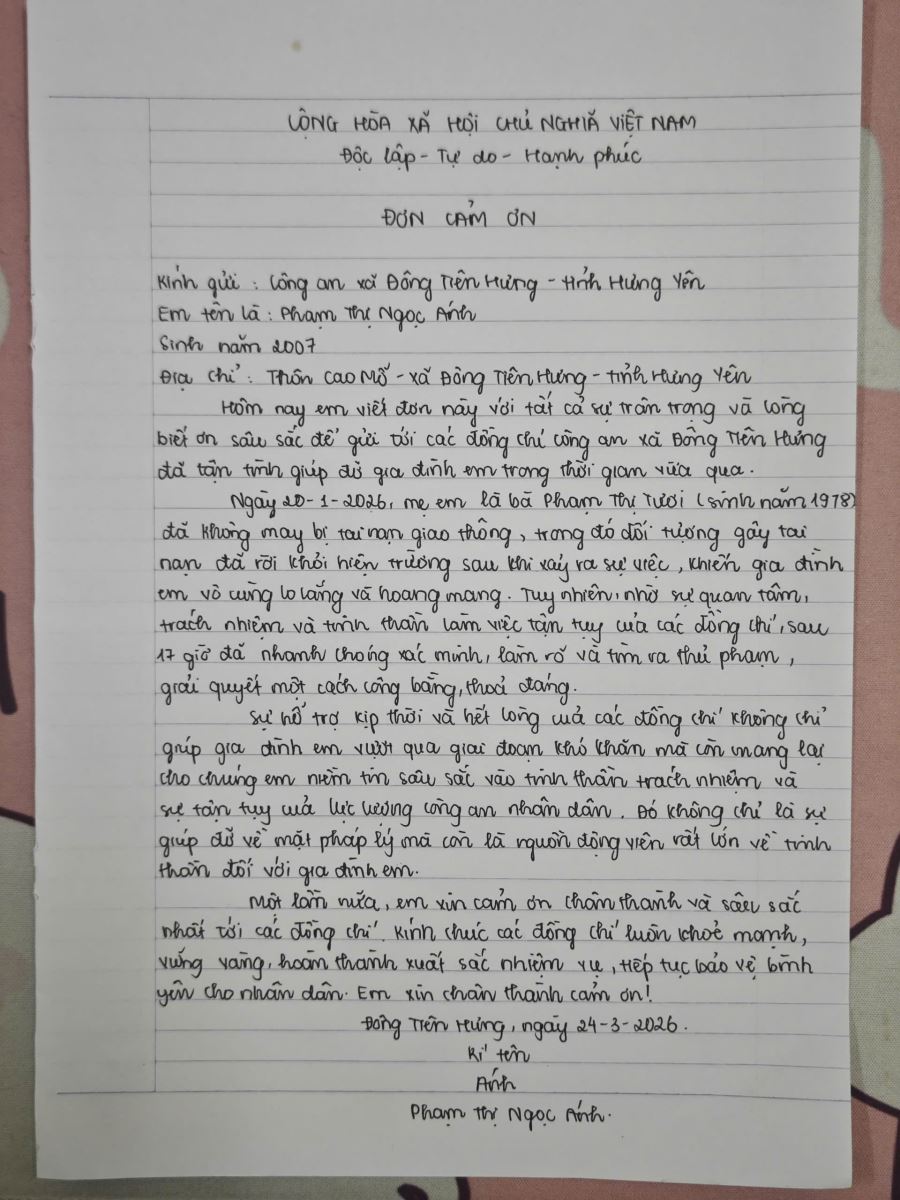 CỘNG HÒA XÃ HỘI CHỦ NGHĨA VIỆT NAM
Độc lập - Tự do - Hạnh phúc
ĐƠN CẢM ƠN
Kính gửi : Công an xã Đông Tiên Hưng - tỉnh Hưng Yên
Em tên là : Phạm Thị Ngọc Ánh
Sinh năm 2007
Địa chỉ : Thôn Cao Mỗ - xã Đông Tiên Hưng - tỉnh Hưng Yên
Hôm nay em viết đơn này với tất cả sự trân trọng và lòng
biết ơn sâu sắc để gửi tới các đồng chí công an xã Đông Tiên Hưng
đã tận tình giúp đỡ gia đình em trong thời gian vừa qua.
Ngày 20-1-2026, mẹ em là bà Phạm Thị Tươi (sinh năm 1978)
đã không may bị tai nạn giao thông, trong đó đối tượng gây tai
nạn đã rời khỏi hiện trường sau khi xảy ra sự việc, khiến gia đình
em vô cùng lo lắng và hoang mang. Tuy nhiên, nhờ sự quan tâm,
trách nhiệm và tinh thần làm việc tận tụy của các đồng chí, sau
17 giờ đã nhanh chóng xác minh, làm rõ và tìm ra thủ phạm,
giải quyết một cách công bằng, thoả đáng.
Sự hỗ trợ kịp thời và hết lòng của các đồng chí không chỉ
giúp gia đình em vượt qua giai đoạn khó khăn mà còn mang lại
cho chúng em niềm tin sâu sắc vào tinh thần trách nhiệm và
sự tận tụy của lực lượng công an nhân dân. Đó không chỉ là sự
giúp đỡ về mặt pháp lý mà còn là nguồn động viên rất lớn về tinh
thần đối với gia đình em.
Một lần nữa, em xin cảm ơn chân thành và sâu sắc
nhất tới các đồng chí. Kính chúc các đồng chí luôn khoẻ mạnh,
vững vàng, hoàn thành xuất sắc nhiệm vụ, tiếp tục bảo vệ bình
yên cho nhân dân. Em xin chân thành cảm ơn!
Đông Tiên Hưng, ngày 24-3-2026.
Kí tên
Ánh
Phạm Thị Ngọc Ánh.